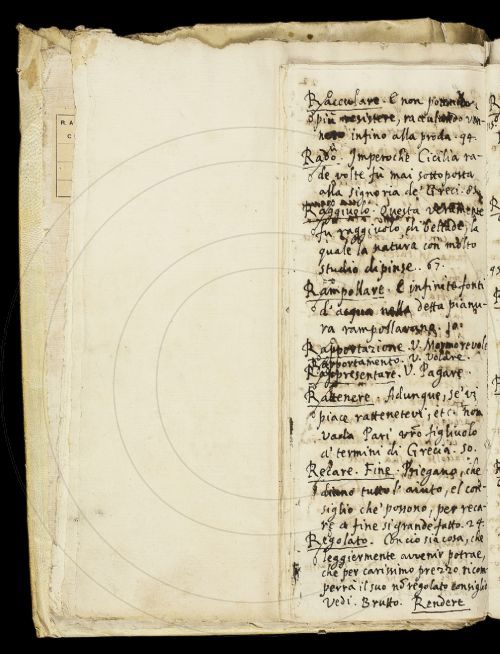 Racculare. E non potendosi
più resistere, racculando ven-
nero infino alla proda. 94.
Rado. Imperoche Cicilia ra-
de volte fù mai sottoposta
alla signoria de' Greci. 85.
Raggiuolo. Questa veramente
fù raggiuolo di beltade, la
quale la natura con molto
studio dipinse. 67.
Rampollare. E infinite fonti
d'acqua nella detta pianu-
ra rampollavano. 10.
Rapportazione. V. Mormorevole
Rapportamento. V. Volare.
Rappresentare. V. Pagare.
Rattenere. Adunque, se'vi
piace rattenetevi, etc. non
vada Pari vro figliuolo
a' termini di Grecia. 50.
Recare. Fine. Priegano, che
diano tutto l'aiuto, el con-
siglio che possono, per reca-
re a fine sì grande fatto. 24.
Regolato. Conciò sia cosa, che
leggiermente avvenir potrae,
che per carissimo prezzo ricom-
perrà il suo nō regolato consiglio
Vedi. Brutto. Rendere
R A
C